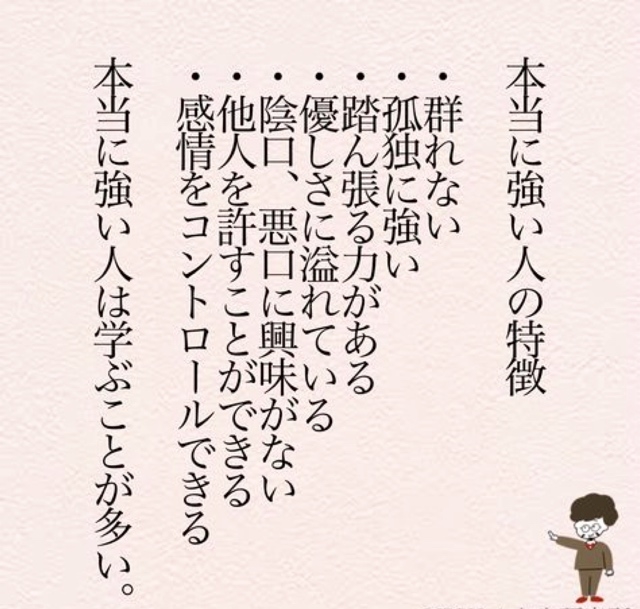 本当に強い人の特徴
・群れない
・孤独に強い
・踏ん張る力がある
・優しさに溢れている
・陰口、悪口に興味がない
・他人を許すことができる
・感情をコントロールできる
本当に強い人は学ぶことが多い。